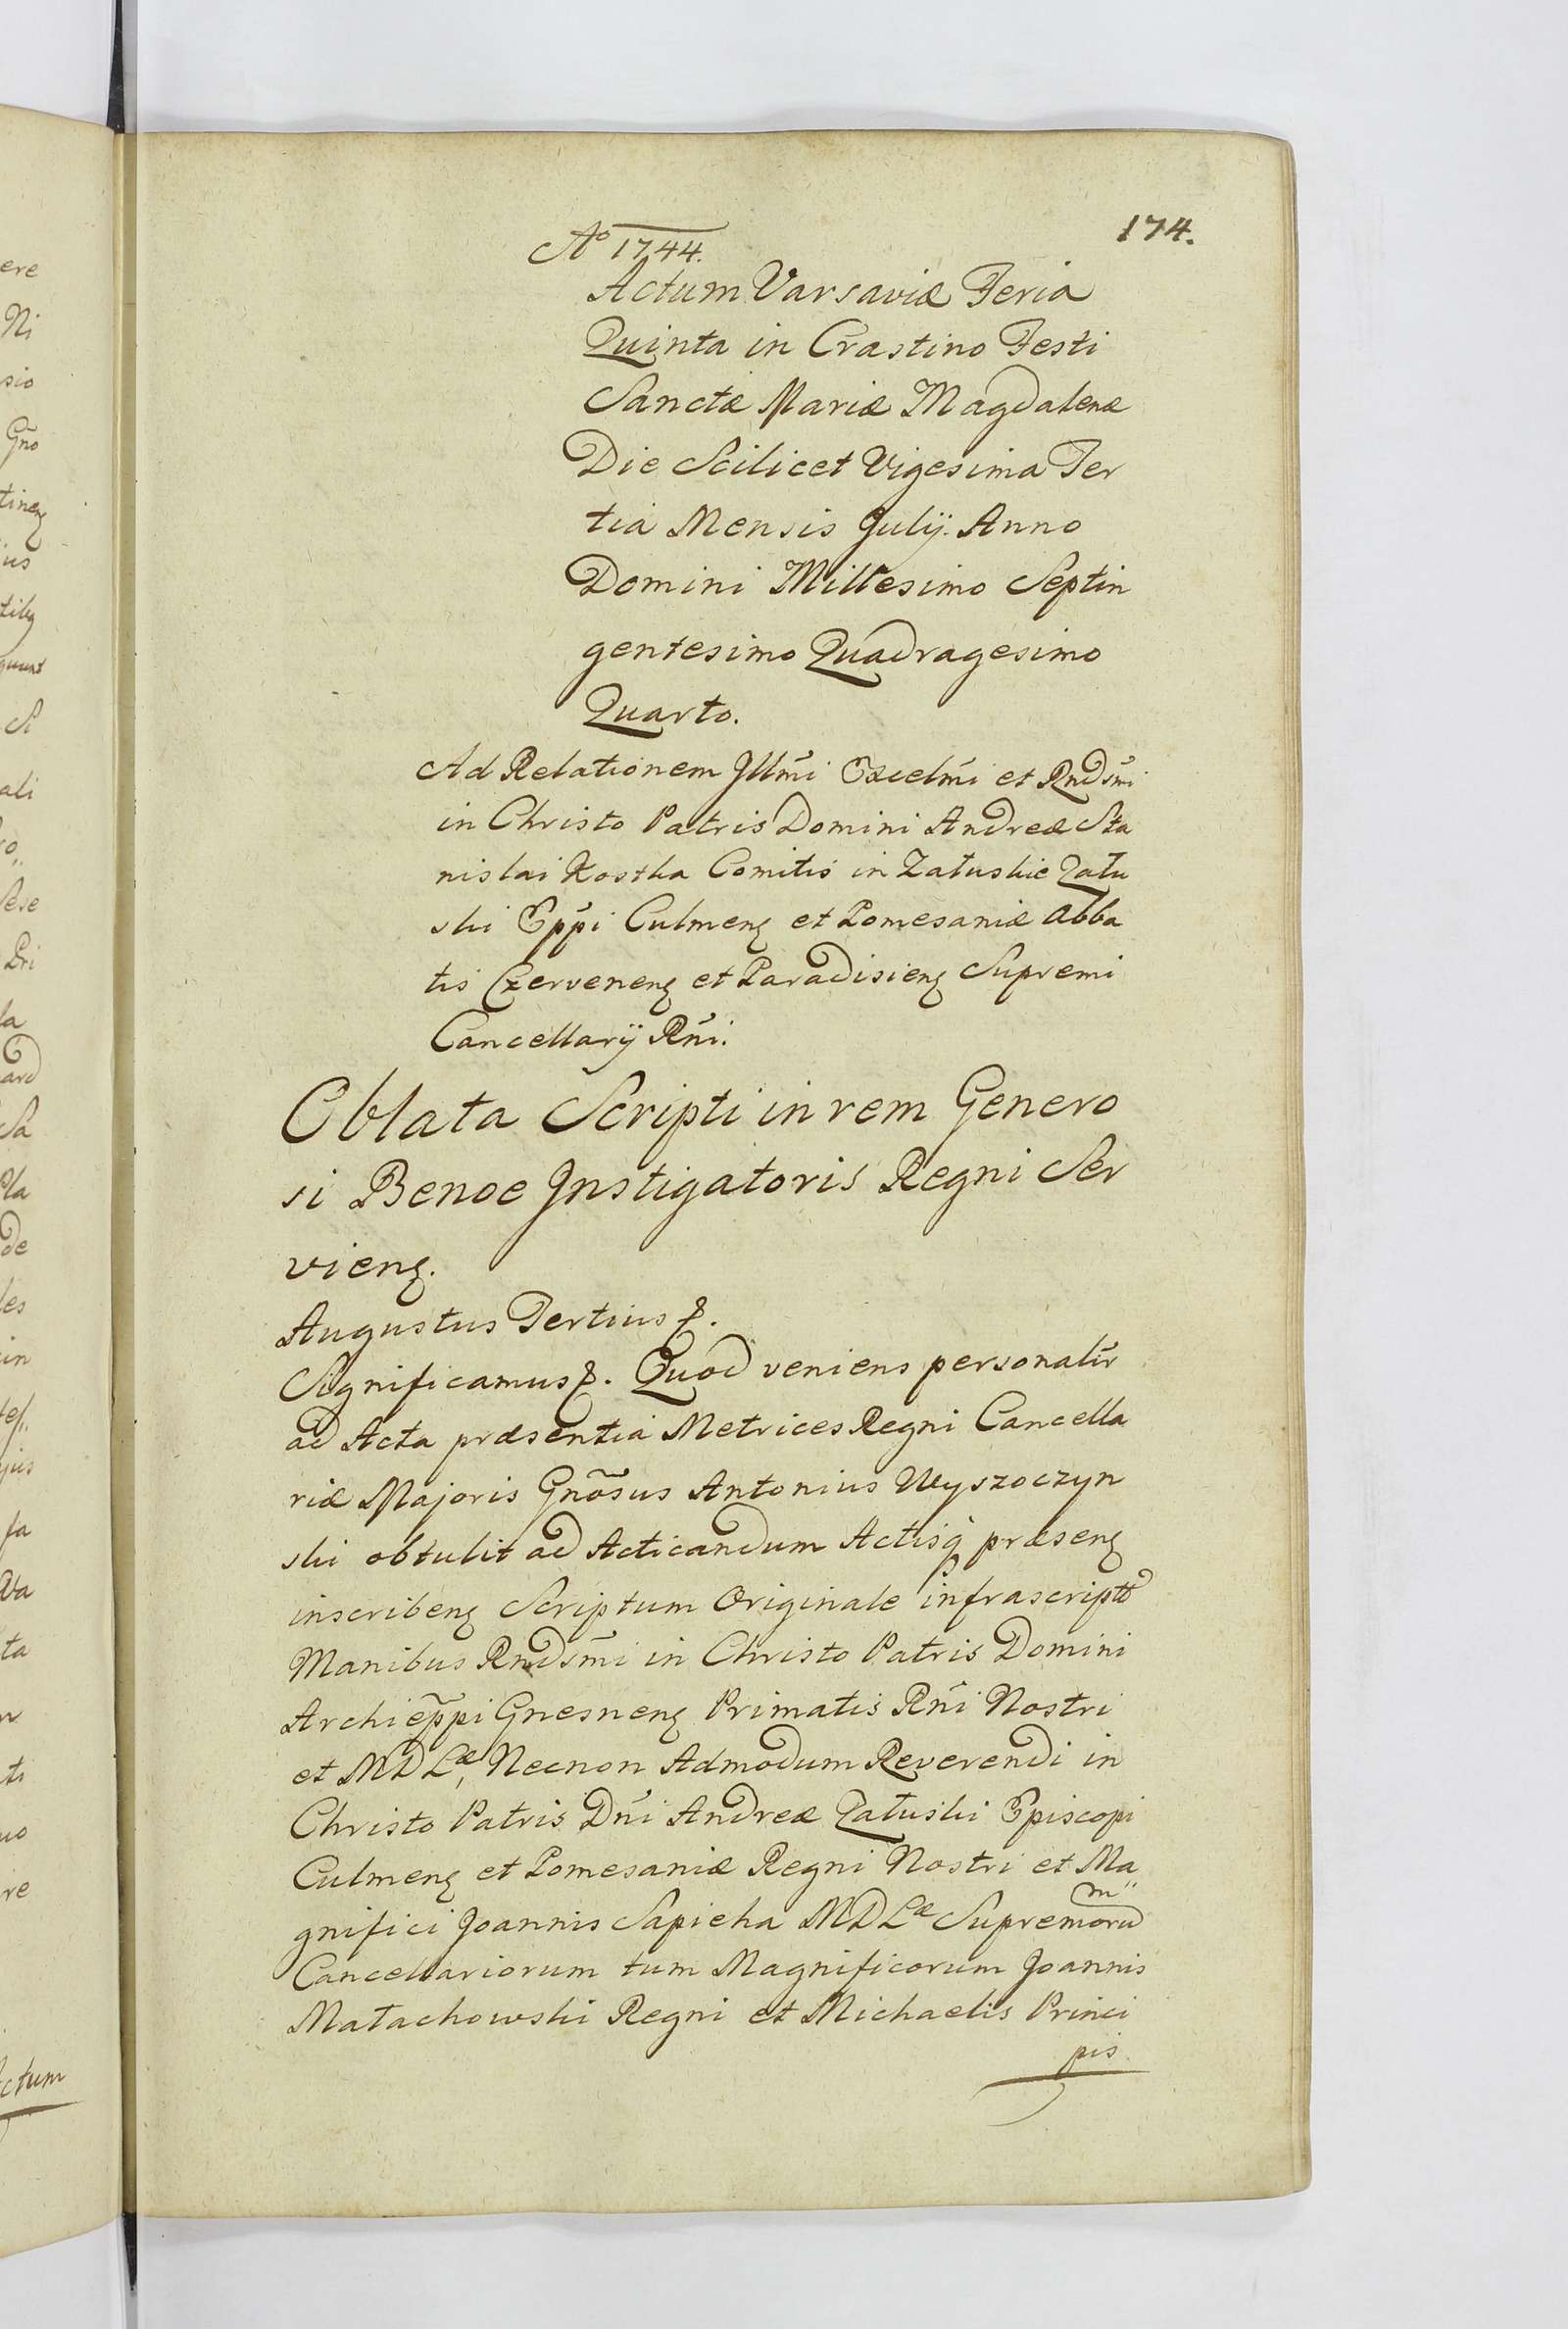 174.
Aº 1744.
Actum Varsaviæ Feria
Quinta in Crastino Festi
Sanctæ Mariæ Magdalenæ
Die Scilicet Vigesima Ter
tia Mensis Julij Anno
Domini Millesimo Septin
gentesimo Quadragesimo
Quarto.
Ad Relationem Jllm̃i Excelm̃i et Rndsm̃i
in Christo Patris Domini Andreæ Sta
nislai Kostka Comitis in Załuskie Zału
ski Epp̃i Culmenꝫ et Pomesaniæ Abba
tis Czervenenꝫ et Paradisienꝫ Supremi
Cancellarij Rñi.
Oblata Scripti in rem Genero
si Benoe Jnstigatoris Regni Ser
vienꝫ.
Augustus Tertius ꝑ.
Significamus ꝑ. Quod veniens personalr̃
ad Acta præsentia Metrices Regni Cancella
riæ Majoris Gnõsus Antonius Wyszoczyn
ski obtulit ad Acticandum Actisq̃ præsenꝫ
inscribenꝫ Scriptum Originale infrascriptt
Manibus Rndsm̃i in Christo Patris Domini
Archiepp̃i Gnesnenꝫ Primatis Rñi Nostri
et MDLæ, Necnon Admodum Reverendi in
Christo Patris Dñi Andreæ Załuski Episcopi
Culmenꝫ et Pomesaniæ Regni Nostri et Ma
gnifici Joannis Sapieha MDLæ Supremorum
Cancellariorum tum Magnificorum Joannis
Małachowski Regni et Michaelis Princi
pis
ere
Ni
sio
Gño
ius
ali
la
Sa
de
les
in
fa
ta
ti
re
Actum